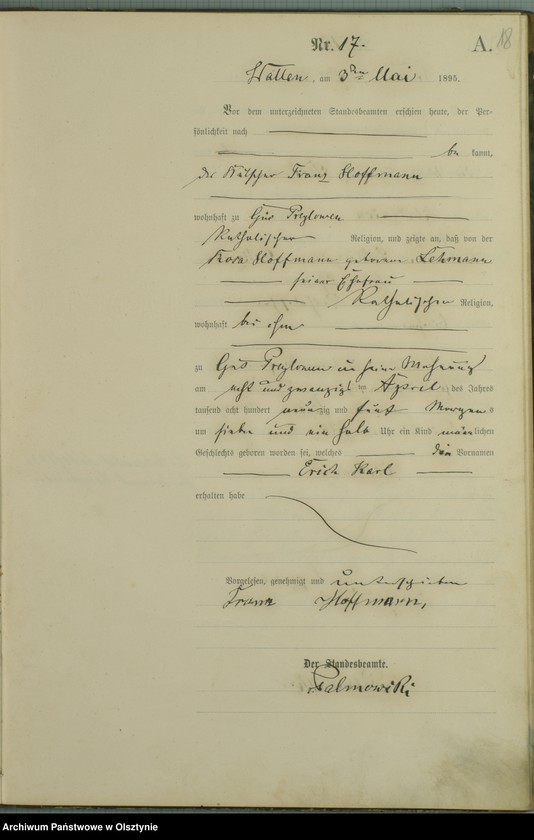 18
Nr. 17. A.
Wallen, am 3ten Mai 1895.
Vor dem unterzeichneten Standesbeamten erschien heute, der Per-
sönlichkeit nach
be kannt,
der Kutscher Franz Hoffmann
wohnhaft zu Gut
Katholischer Religion, und zeigte an, daß von der
Rosa Hoffmann geborene Lehmann
seiner Ehefrau
Katholischer Religion,
wohnhaft bei ihm
zu Gut in seine Wohnung
am acht und zwanzigsten April des Jahres
tausend acht hundert neunzig und fünf Morgens
um sieben und ein halb Uhr ein Kind männlichen
Geschlechts geboren worden sei, welches den Vornamen
Erich Karl
erhalten habe
Vorgelesen, genehmigt und unterschrieben
Franz Hoffmann,
Der Standesbeamte.
Palmowski
Archiwum Państwowe w Olsztynie